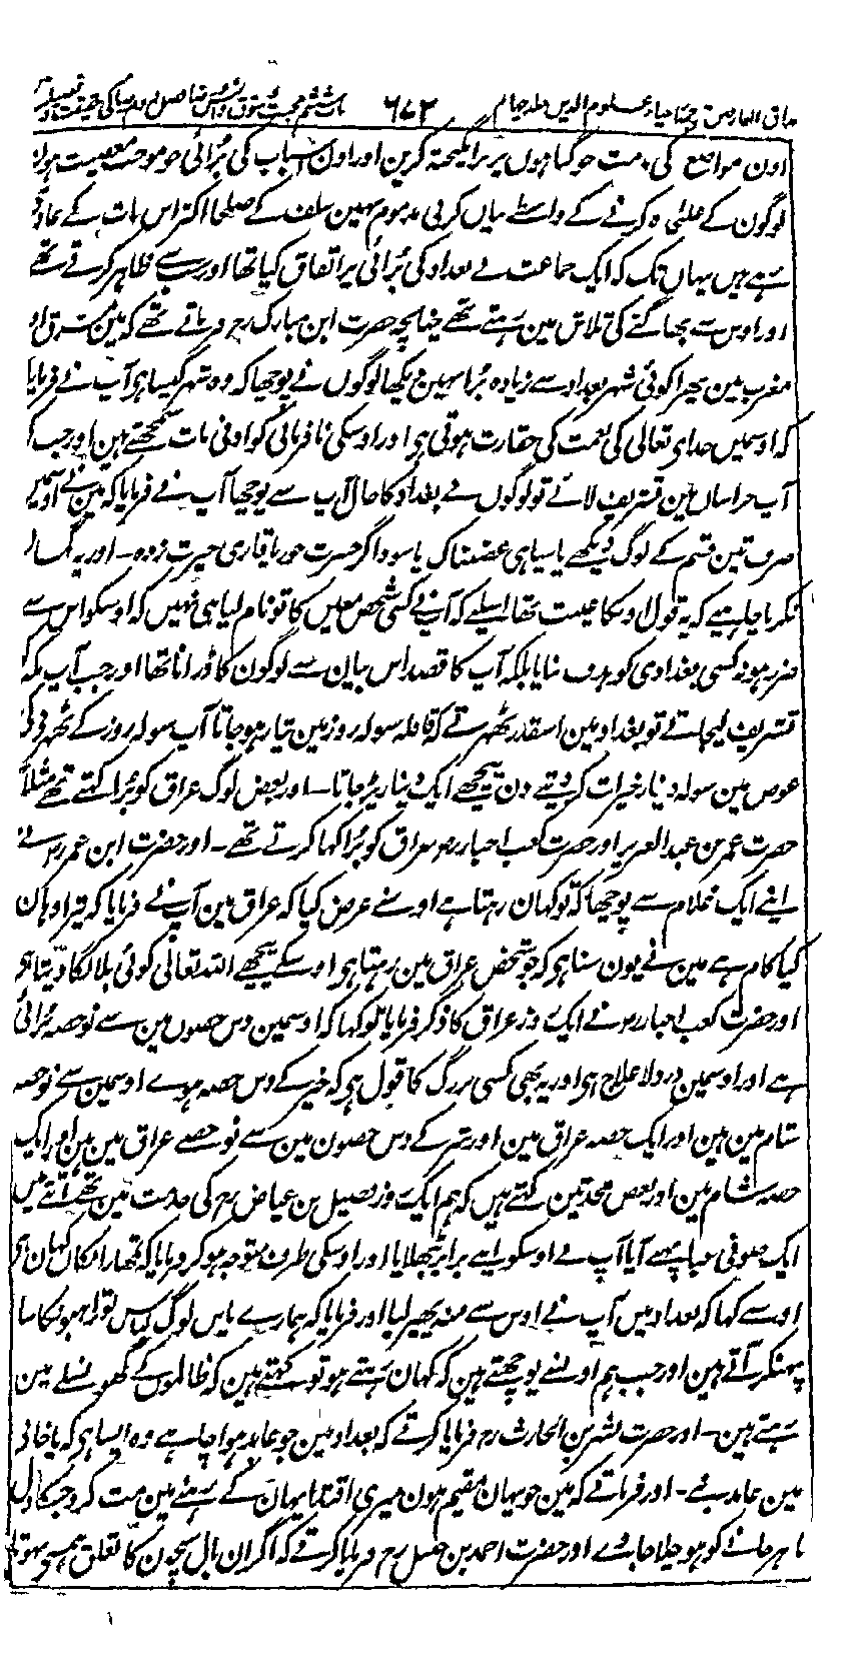 مذاق العارفین ترجمہ احیاء علوم الدین جلد چہارم ۶۷۲ باب ششم محبت و شوق و انس
اون مواضع کی مذمت جو گناہوں پر برانگیختہ کریں اور اون اسباب کی برائی جو موجب معصیت ہوں
لوگون کے علٰحدہ کرنے کے واسطے بیان کرنی مذموم نہین سلف کے صلحا اکثر اس بات کے عادی
رہے ہیں یہاں تک کہ ایک جماعت نے بغداد کی برائی پر اتفاق کیا تھا اور سب سے ظاہر کرتے تھے
اور اوس سے بھاگنے کی تلاش مین رہتے تھے چنانچہ حضرت ابن مبارک رح فرماتے تھے کہ مین مشرق اور
مغرب مین پھرا کوئی شہر بغداد سے زیادہ برا نہین دیکھا لوگوں نے پوچھا کہ وہ شہر کیسا ہی آپ نے فرمایا
کہ اوسمیں خدای تعالی کی نعمت کی حقارت ہوتی ہی اور اوسکی نافرمانی کو ادنی بات سمجھتے ہین اور جب کہ
آپ خراسان مین تشریف لائے تو لوگوں نے بغداد کا حال آپ سے پوچھا آپ نے فرمایا کہ مین نے اوسمین
صرف تین قسم کے لوگ دیکھے یا سپاہی غضبناک یا سوداگر حسرت خور یا قاری حیرت زدہ۔ اور یہ گمان
نکرنا چاہیے کہ یہ قول اونکا غیبت تھا اسلیے کہ آپ نے کسی شخص معین کا تو نام لیا ہی نہیں کہ اوسکو اس سے
ضرر ہو نہ کسی بغدادی کو ہدف بنایا بلکہ آپ کا قصد اس بیان سے لوگون کا ڈرانا تھا اور جب آپ مکہ کو
تشریف لیجاتے تو بغداد مین اسقدر ٹھہرتے کہ قافلہ سولہ روز مین تیار ہو جاتا آپ سولہ روز کے ٹھہرنے کی
عوض مین سولہ دینار خیرات کر دیتے دن پیچھے ایک دینار پڑ جاتا۔ اور بعض لوگ عراق کو برا کہتے تھے مثلاً
حضرت عمر بن عبد العزیز اور حضرت کعب احبار رض عراق کو برا کہا کرتے تھے۔ اور حضرت ابن عمر رض نے
اپنے ایک غلام سے پوچھا کہ تو کہان رہتا ہے اوسنے عرض کیا کہ عراق مین آپ نے فرمایا کہ تیرا وہان
کیا کام ہے مین نے یون سنا ہی کہ جو شخص عراق مین رہتا ہی اوسکے پیچھے اللہ تعالی کوئی بلا لگا دیتا ہی
اور حضرت کعب احبار رض نے ایک روز عراق کا ذکر فرمایا تو کہا کہ اوسمین دس حصوں مین سے نو حصہ برائی
ہے اور اوسمین درد لا علاج ہی اور یہ بھی کسی بزرگ کا قول ہی کہ خیر کے دس حصہ ہوے اوسمین سے نو حصہ
شام مین ہین اور ایک حصہ عراق مین اور شر کے دس حصون مین سے نو حصے عراق مین ہین اور ایک
حصہ شام مین اور بعض محدثین کہتے ہیں کہ ہم ایک روز فضیل بن عیاض رح کی خدمت مین تھے اتنے میں
ایک صوفی عبا پہنے آیا آپ نے اوسکو اپنے برابر بٹھلایا اور اوسکی طرف متوجہ ہو کر فرمایا کہ تمھارا مکان کہان ہی
اوسنے کہا کہ بغداد میں آپ نے اوس سے منہ پھیر لیا اور فرمایا کہ ہمارے پاس لوگ لباس تو راہبونکا سا
پہنکر آتے ہین اور جب ہم اونسے پوچھتے ہین کہ کہان رہتے ہو تو کہتے ہین کہ ظالموں کے گھونسلے مین
رہتے ہین۔ اور حضرت بشر بن الحارث رح فرمایا کرتے کہ بغداد مین جو عابد ہوا چاہے وہ ایسا ہی کہ پاخانی
مین عابد بنے۔ اور فرماتے کہ مین جو یہان مقیم ہون میری اقتدا یہان کے رہنے مین مت کرو جسکا دل
باہر جانے کو ہو چلا جاوے اور حضرت احمد بن حنبل رح فرمایا کرتے کہ اگر ان بال بچون کا تعلق ہمسے نہوتا